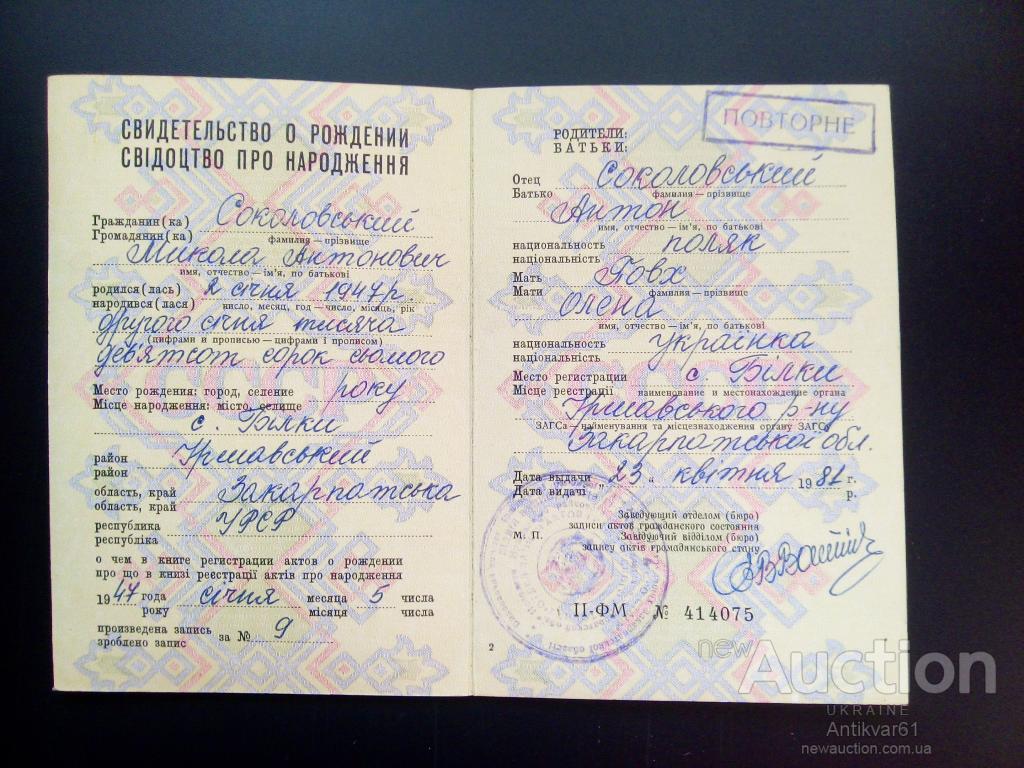 СВИДЕТЕЛЬСТВО О РОЖДЕНИИ
СВІДОЦТВО ПРО НАРОДЖЕННЯ
Гражданин(ка) Соколовський
Громадянин(ка)
фамилия — прізвище
Микола Антонович
имя, отчество — ім'я, по батькові
родился(лась) 2 січня 1947 р.
народився(лася)
число, месяц, год — число, місяць, рік
другого січня тисяча
(цифрами и прописью — цифрами і прописом)
дев'ятсот сорок сьомого
Место рождения: город, селение року
Місце народження: місто, селище
с. Білки
район Іршавський
район
область, край Закарпатська
область, край
республика УРСР
республіка
о чем в книге регистрации актов о рождении
про що в книзі реєстрації актів про народження
1947 года січня месяца 5 числа
року місяця числа
произведена запись за № 9
зроблено запис
ПОВТОРНЕ
РОДИТЕЛИ:
БАТЬКИ:
Отец Соколовський
Батько
фамилия — прізвище
Антон
имя, отчество — ім'я, по батькові
национальность поляк
національність
Мать Говх
Мати
фамилия — прізвище
Олена
имя, отчество — ім'я, по батькові
национальность українка
національність
Место регистрации с. Білки
Місце реєстрації
наименование и местонахождение органа
Іршавського р-ну
ЗАГСа — найменування та місцезнаходження органу ЗАГСу
Закарпатської обл.
Дата выдачи „ 23 " квітня 1981 г.
Дата видачі р.
Заведующий отделом (бюро)
записи актов гражданского состояния
М. П. Завідуючий відділом (бюро)
запису актів громадянського стану
II-ФМ № 414075
2
newAuction
UKRAINE
Antikvar61
newauction.com.ua